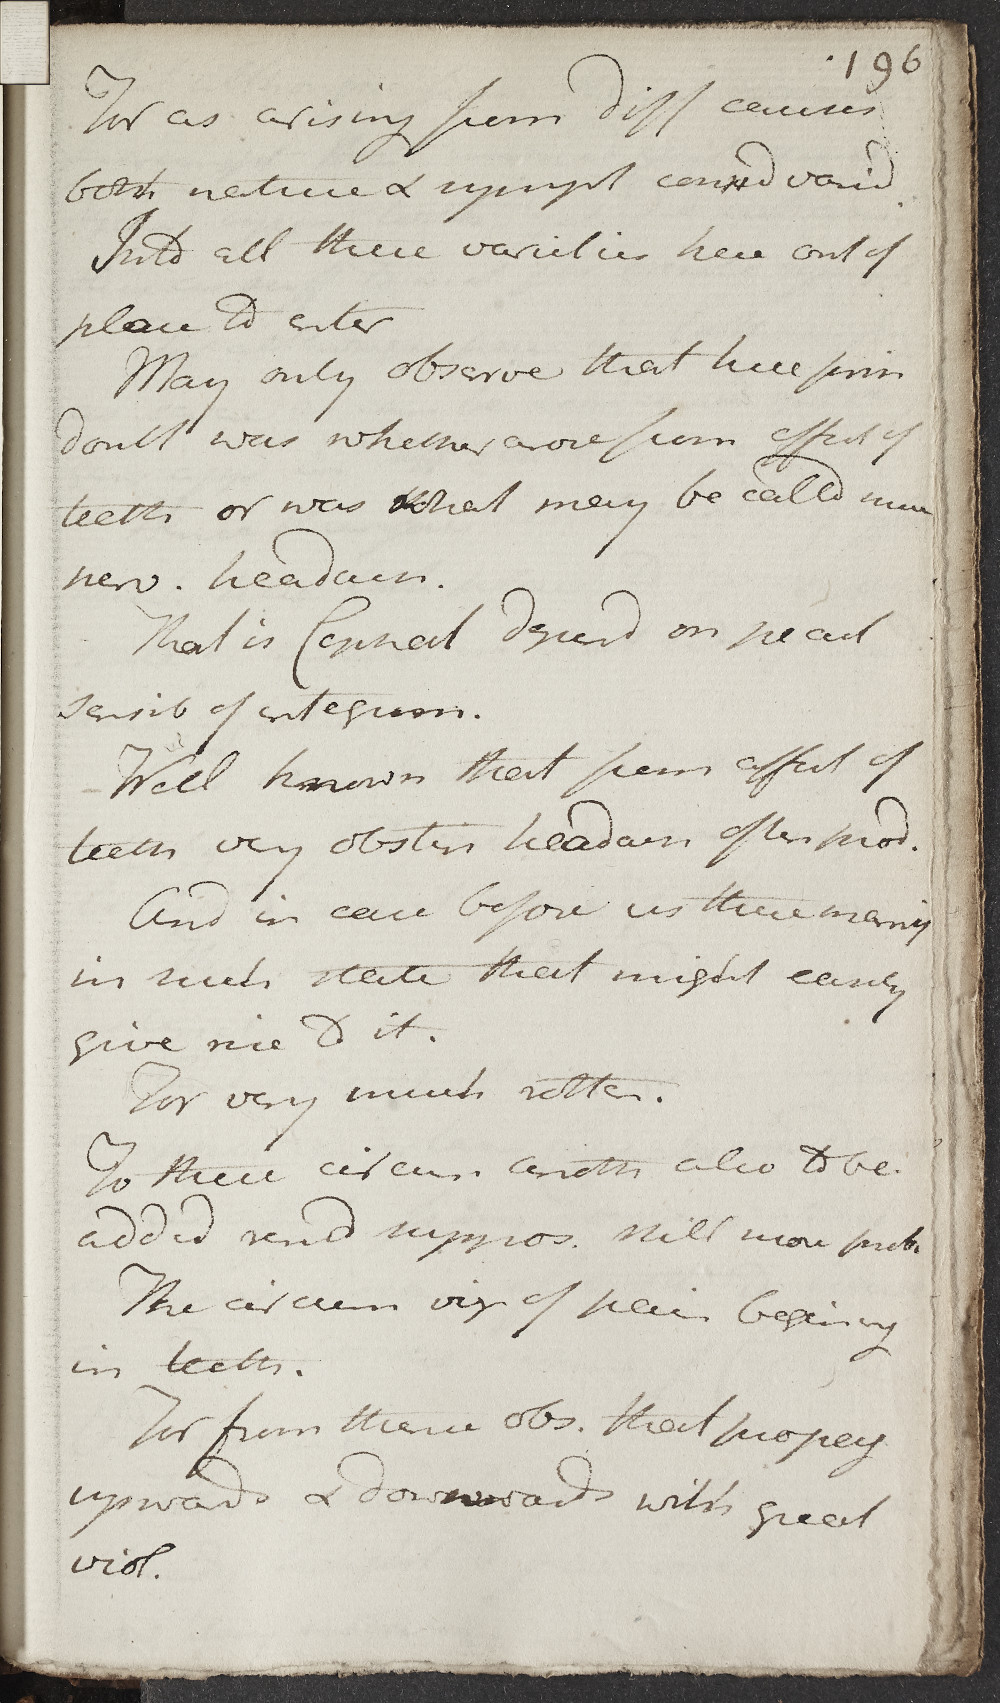 196
For as arising from diff causes
both nature & sympt consid varid.
Into all these varieties here out of
place to enter
May only observe that here prin
doubt was whether arose from affect of
teeth or was what may be called mere
nerv. headach.
That is Cepheal depend on pecul
sensib of integum.
Well known that from affect of
teeth very obstin headach often prod.
And in case before us these many
in such state that might easily
give rise to it.
For very much rotten.
To these circum anoth also to be
added rend suppos. still more prob
The circum viz of pain beginning
in teeth.
For from thence obs. that propag
upwards & downwards with great
viol.